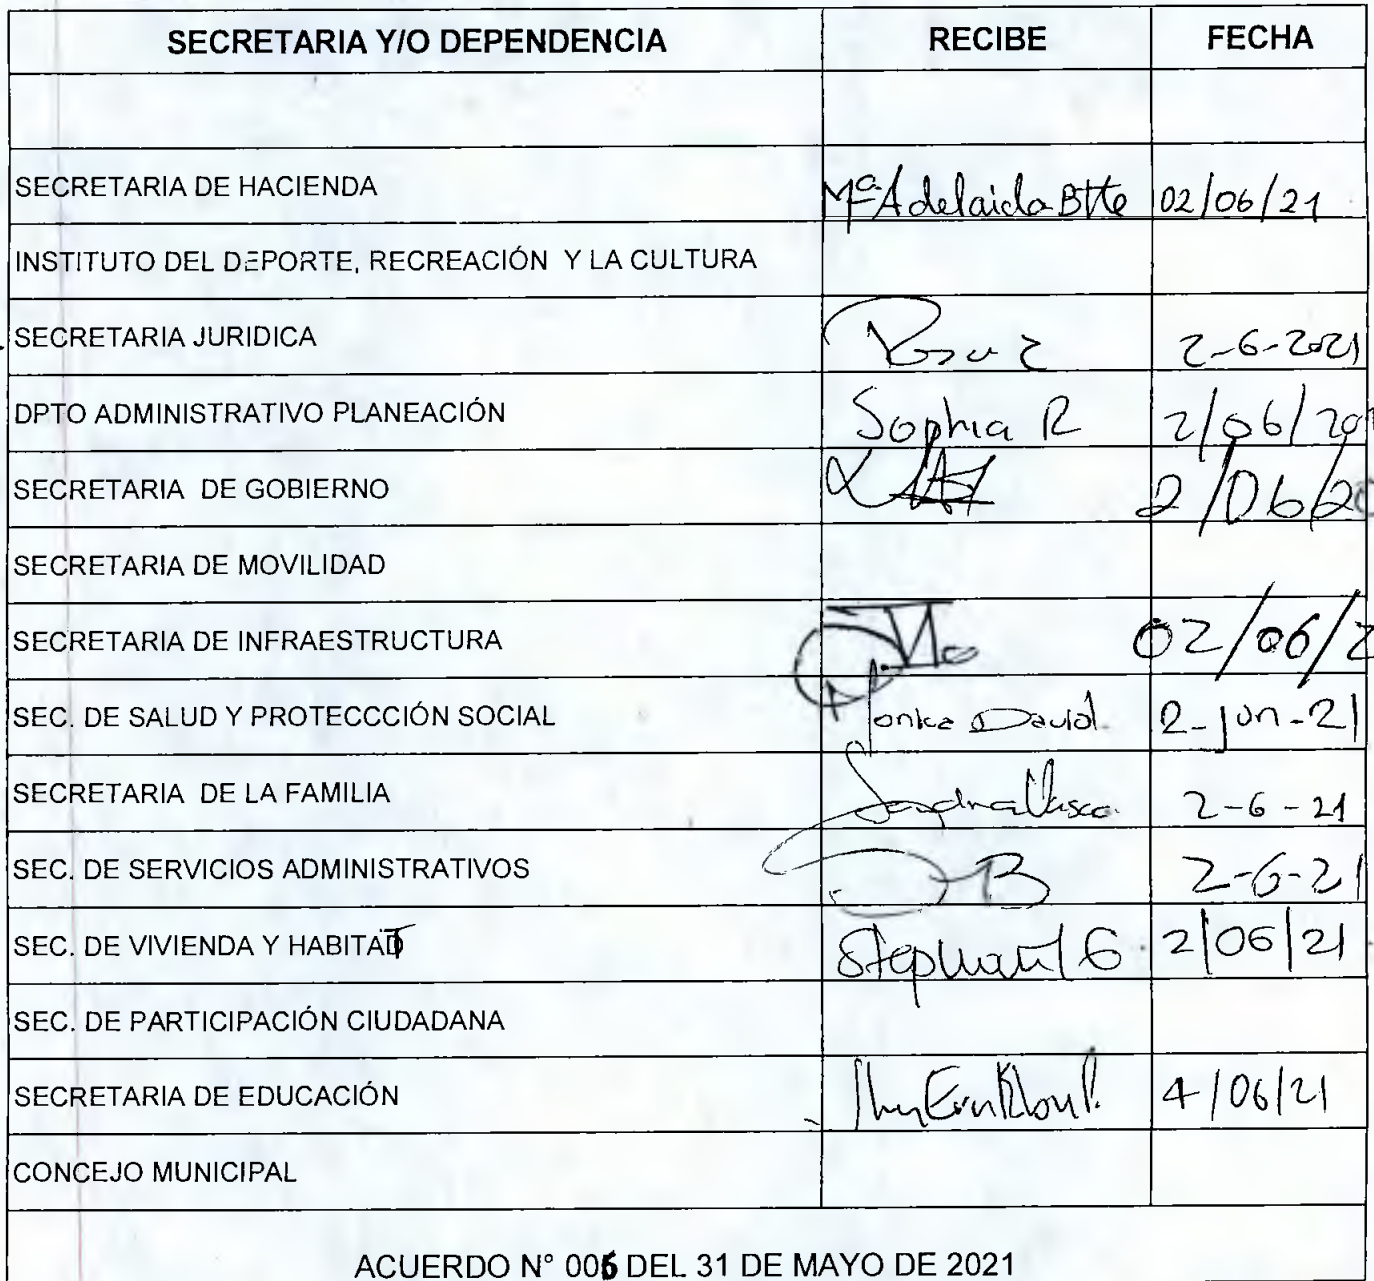 SECRETARIA Y/O DEPENDENCIA RECIBE FECHA
SECRETARIA DE HACIENDA Mª Adelaida Btte 02/06/21
INSTITUTO DEL DEPORTE, RECREACIÓN Y LA CULTURA
SECRETARIA JURIDICA 2-6-2021
DPTO ADMINISTRATIVO PLANEACIÓN Sophia R 2/06/202
SECRETARIA DE GOBIERNO 2/06/20
SECRETARIA DE MOVILIDAD
SECRETARIA DE INFRAESTRUCTURA 02/06/2
SEC. DE SALUD Y PROTECCCIÓN SOCIAL Monica David. 2-jun-21
SECRETARIA DE LA FAMILIA Sandra Vasco 2-6-21
SEC. DE SERVICIOS ADMINISTRATIVOS 2-6-21
SEC. DE VIVIENDA Y HABITAT 2/06/21
SEC. DE PARTICIPACIÓN CIUDADANA
SECRETARIA DE EDUCACIÓN 4/06/21
CONCEJO MUNICIPAL
ACUERDO N° 006 DEL 31 DE MAYO DE 2021